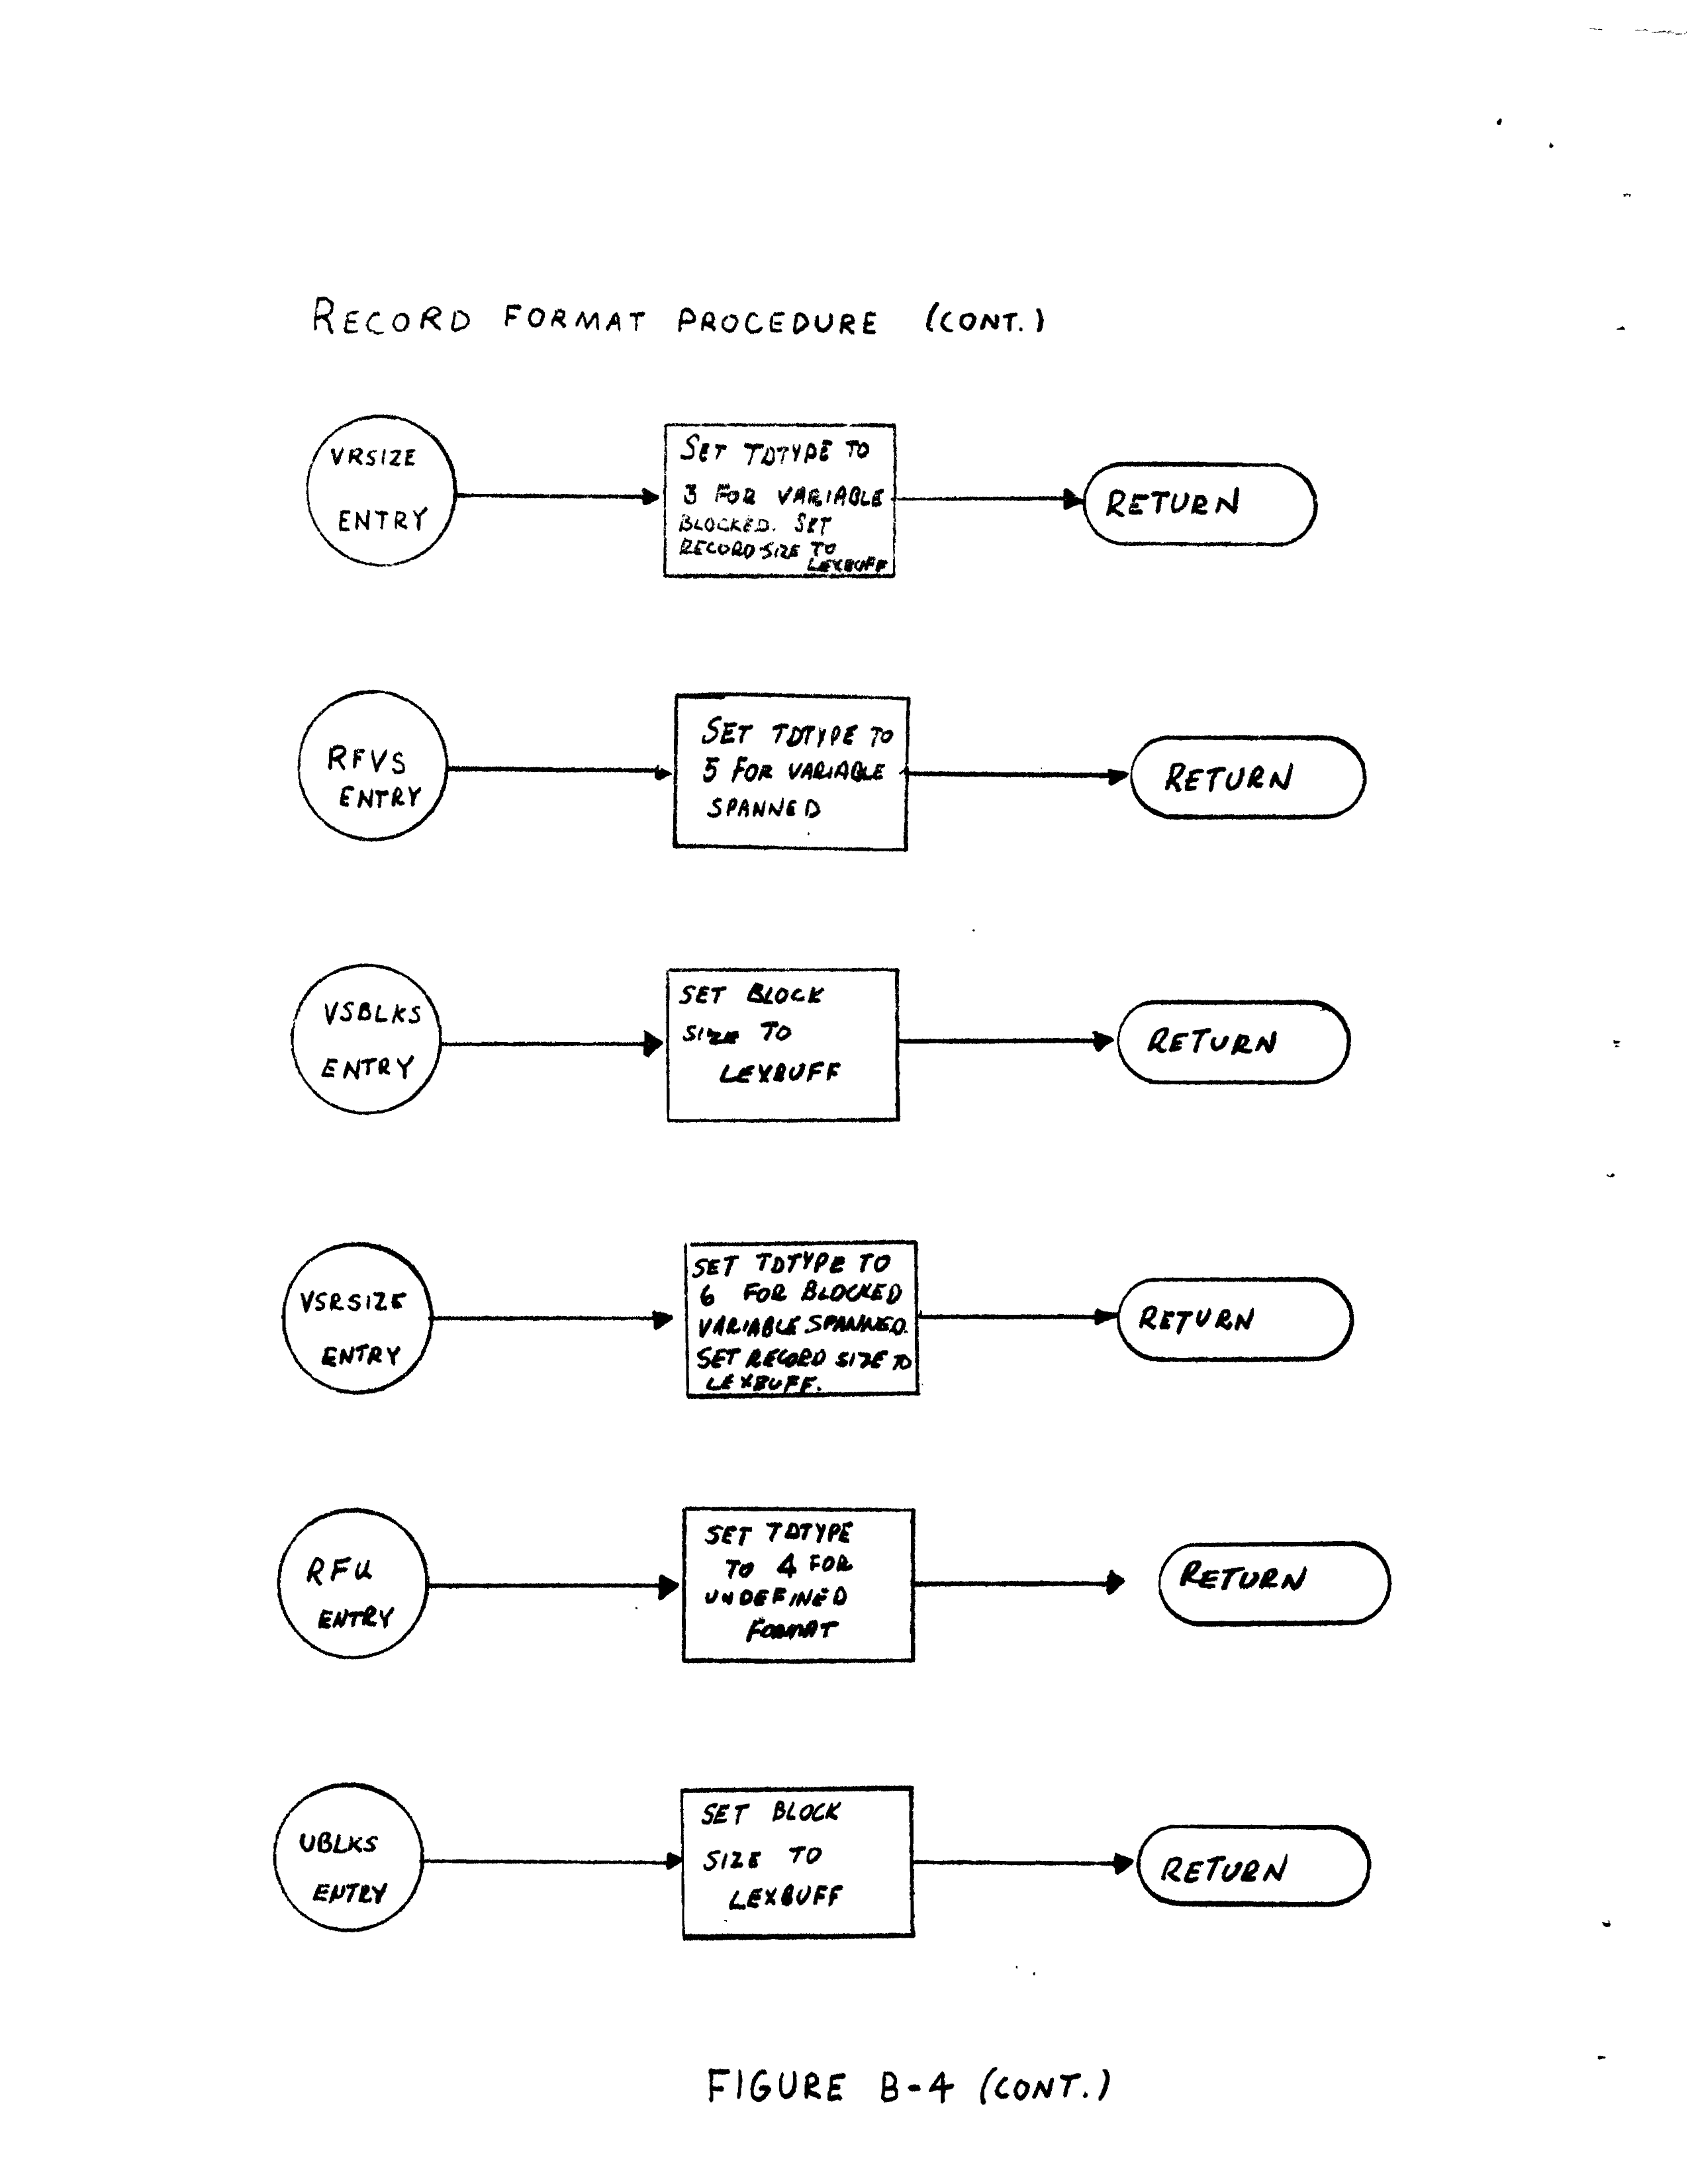 RECORD FORMAT PROCEDURE (CONT.)
VRSIZE
ENTRY
SET TDTYPE TO
3 FOR VARIABLE
BLOCKED. SET
RECORD SIZE TO
LEXBUFF
RETURN
RFVS
ENTRY
SET TDTYPE TO
5 FOR VARIABLE
SPANNED
RETURN
VSBLKS
ENTRY
SET BLOCK
SIZE TO
LEXBUFF
RETURN
VSRSIZE
ENTRY
SET TDTYPE TO
6 FOR BLOCKED
VARIABLE SPANNED.
SET RECORD SIZE TO
LEXBUFF.
RETURN
RFU
ENTRY
SET TDTYPE
TO 4 FOR
UNDEFINED
FORMAT
RETURN
UBLKS
ENTRY
SET BLOCK
SIZE TO
LEXBUFF
RETURN
FIGURE B-4 (CONT.)